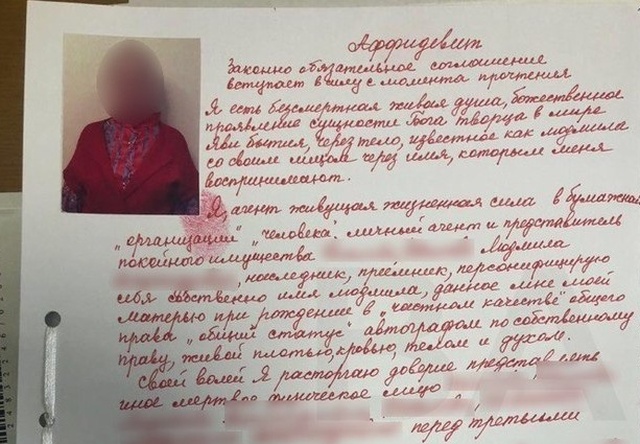 Аффидевит
Законно обязательное соглашение
вступает в силу с момента прочтения
Я есть безсмертная живая душа, божественное
проявление сущности Бога творца в мире
Яви бытия, через тело, известное как людмила
со своим лицом через имя, которым меня
воспринимают.
Я, агент живущая жизненная сила в бумажном
„организаций" „человека". личный агент и представитель
покойного имущества Людмила
, наследник, приёмник, персонифицирую
себя собственно имя людмила, данное мне моей
матерью при рождении в „частном качестве" общего
права „общий статус" автографом по собственному
праву, живой плотью, кровью, телом и духом.
Своей волей Я расторгаю доверие представлять
иное мертвое лицо
перед третьими